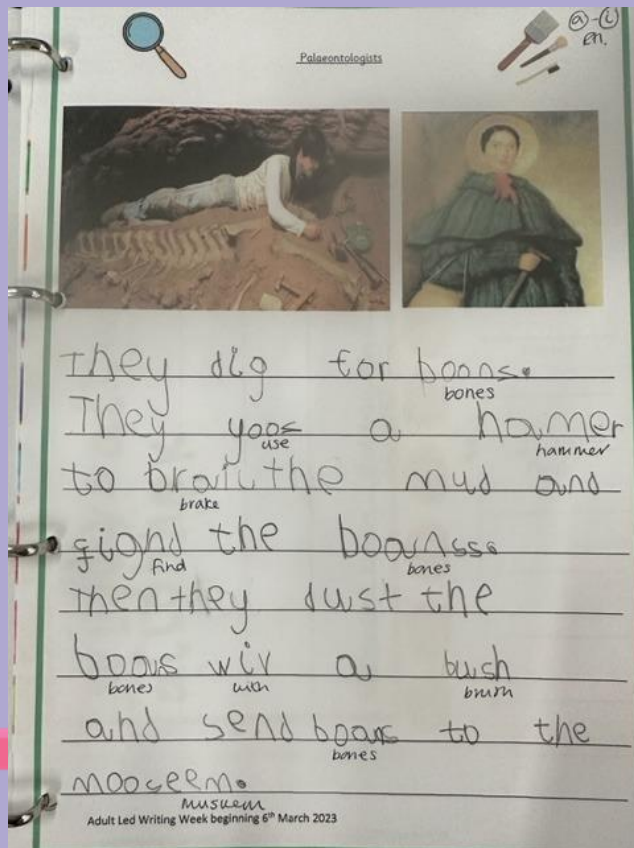 a-i
en.
Palaeontologists
They dig for boons.
bones
They yoos a hamer
use hammer
to braik the mud and
brake
fighd the boansss.
find bones
Then they dust the
boans wiv a bush
bones with brush
and send boans to the
bones
mooseem.
museum
Adult Led Writing Week beginning 6th March 2023